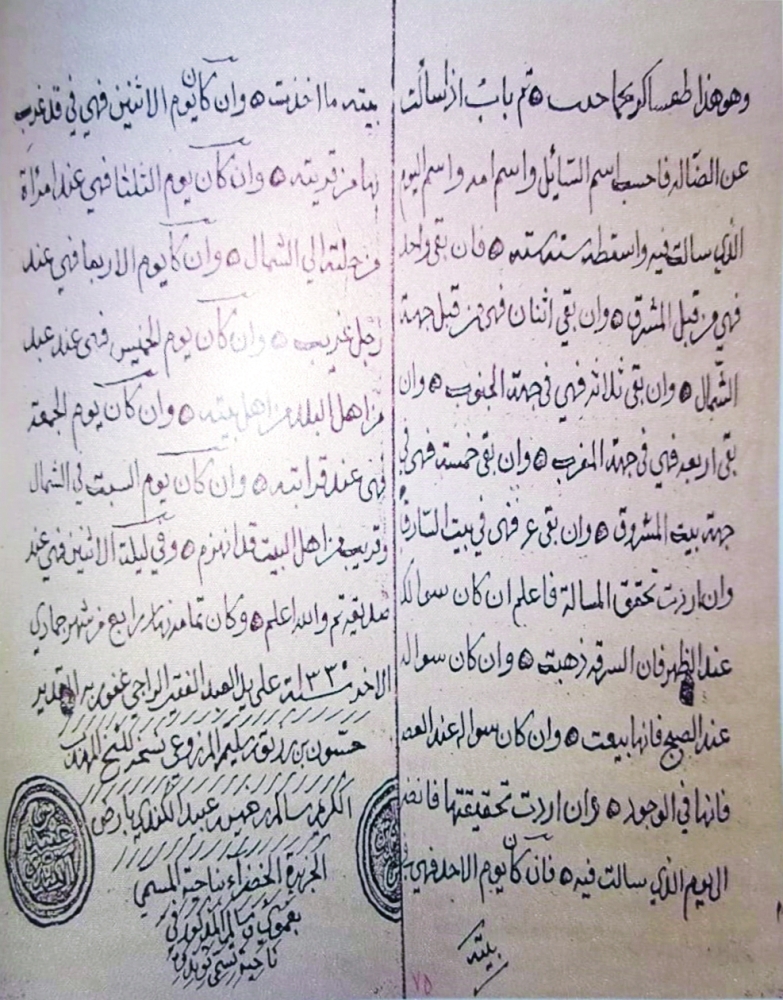 وهو هذا طهسا كريحا حدب ه تم باب اذا سالت
عن الضاله فاحسب اسم السائل واسم امه واسم اليوم
الذي سالت فيه واسقطه سته سته ه فان بقى واحد
فهي من قبل المشرق ه وان بقي اثنان فهي من قبل جهة
الشمال ه وان بقى ثلاثه فهي في جهة الجنوب ه وان
بقى اربعه فهي في جهة المغرب ه وان بقى خمسة فهي في
جهة بيت المشروق ه وان بقى فهى في بيت السارق
وان اردت تحقق المسالة فاعلم ان كان سوالك
عند الظهر فان السرقه ذهبت ه وان كان سواله
عند الصبح فانها بيعت ه وان كان سواله عند العصر
فانها في الوجود ه وان اردت تحقيقتها فانظر
الى يوم الذي سالت فيه ه فان كان يوم الاحد فهي
بيته
٧٥
بيته ما اخذت ه وان كان يوم الاثنين فهي في قد غرب
بها من قريته ه وان كان يوم الثلثا فهي عند امراة
من حلته الي الشمال ه وان كان يوم الاربعا فهي عند
رجل غريب ه وان كان يوم الخميس فهى عند عبد
من اهل البلد من اهل بيته ه وان كان يوم الجمعة
فهى عند قرابته ه وان كان يوم السبت في الشمال
وقريب من اهل البيت قد انهزم ه وفي ليلة الاثنين فهي عند
صديقه تم والله اعلم ه وكان تمامه نهار رابع من شهر جمادي
الاخر سنة ١٣٣٠ على يد العبد الفقير الراجي عفو ربه القدير
حسون بن رزيق بن سليم المزروعي للشيخ المهذب
الكريم سالم بن خميس بن عبيد الكندي بارض
الجزيرة الخضراء بناحية المسمي
سالم المذكور في
ناحية تسمى